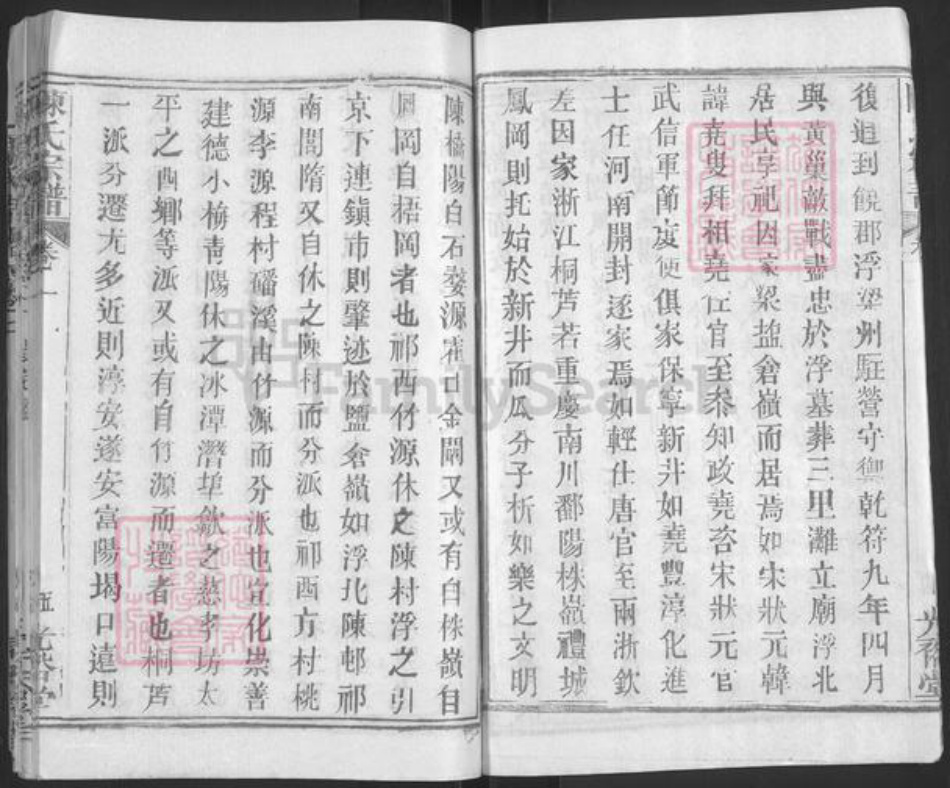 復追到饒郡浮梁州駐營守御乾符九年四月
與黃巢敵戰盡忠於浮墓葬三里灘立廟浮北
居民享祀因家梁盐倉嶺而居焉如宋狀元韓
諱堯叟拜相堯佐官至參知政堯咨宋狀元官
武信軍節度使俱家保寧新井如堯豐淳化進
士任河南開封逐家焉如輕仕唐官至兩浙欽
左因家浙江桐芦若重慶南川鄱陽株嶺禮城
鳳岡則托始於新井而瓜分子析如樂之文明
陳橋陽白石婺源霍口金閌又或有自侏嶺自
鳳岡自梧岡者也祁西竹源休之陳村浮之引
京下連鎮市則肇迹於鹽倉嶺如浮北陳邨祁
南閶隋又自休之陳村而分派也祁西方村桃
源李源程村磻溪由竹源而分派也宜化崇善
建德小梅青陽休之冰潭潛埠歙之慈孝坊太
平之西鄉等派又或有自竹源而遷者也桐芦
一派分遷尤多近則淳安遂安富陽堨口遠則
陳氏宗譜
卷一
五
光裕堂
光裕堂
FamilySearch